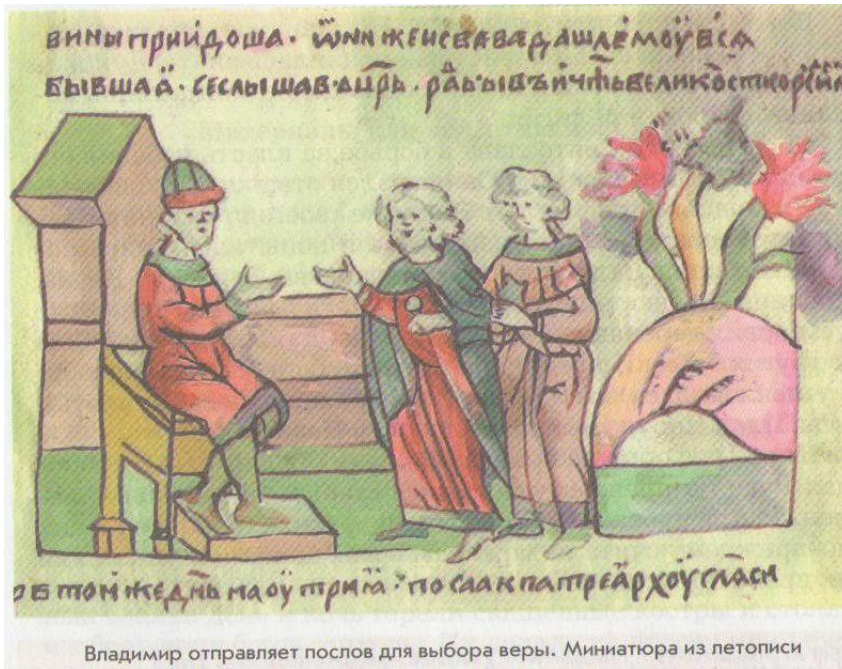 вины приидоша · ѡни же вся
бывшаꙗ · се слышав црь · рад бывъ и чть велик
в тои же днь на оутриꙗ · посла к патреарху глася
Владимир отправляет послов для выбора веры. Миниатюра из летописи